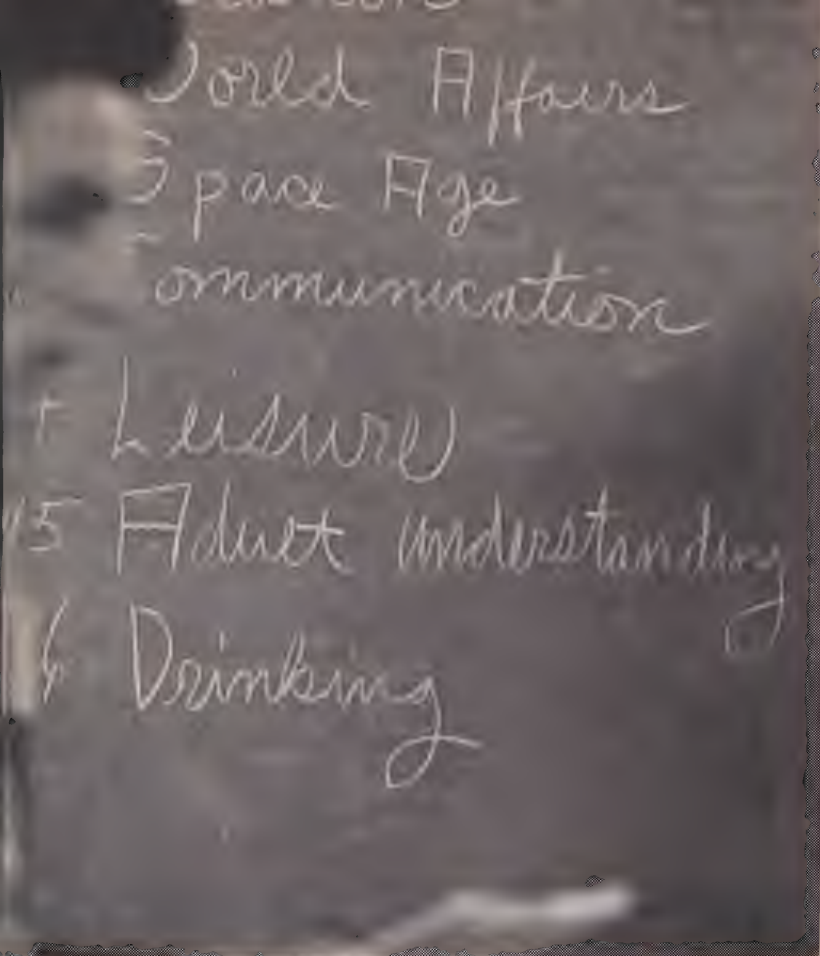 World Affairs
Space Age
ommunication
Leisure
15 Adult understanding
Drinking